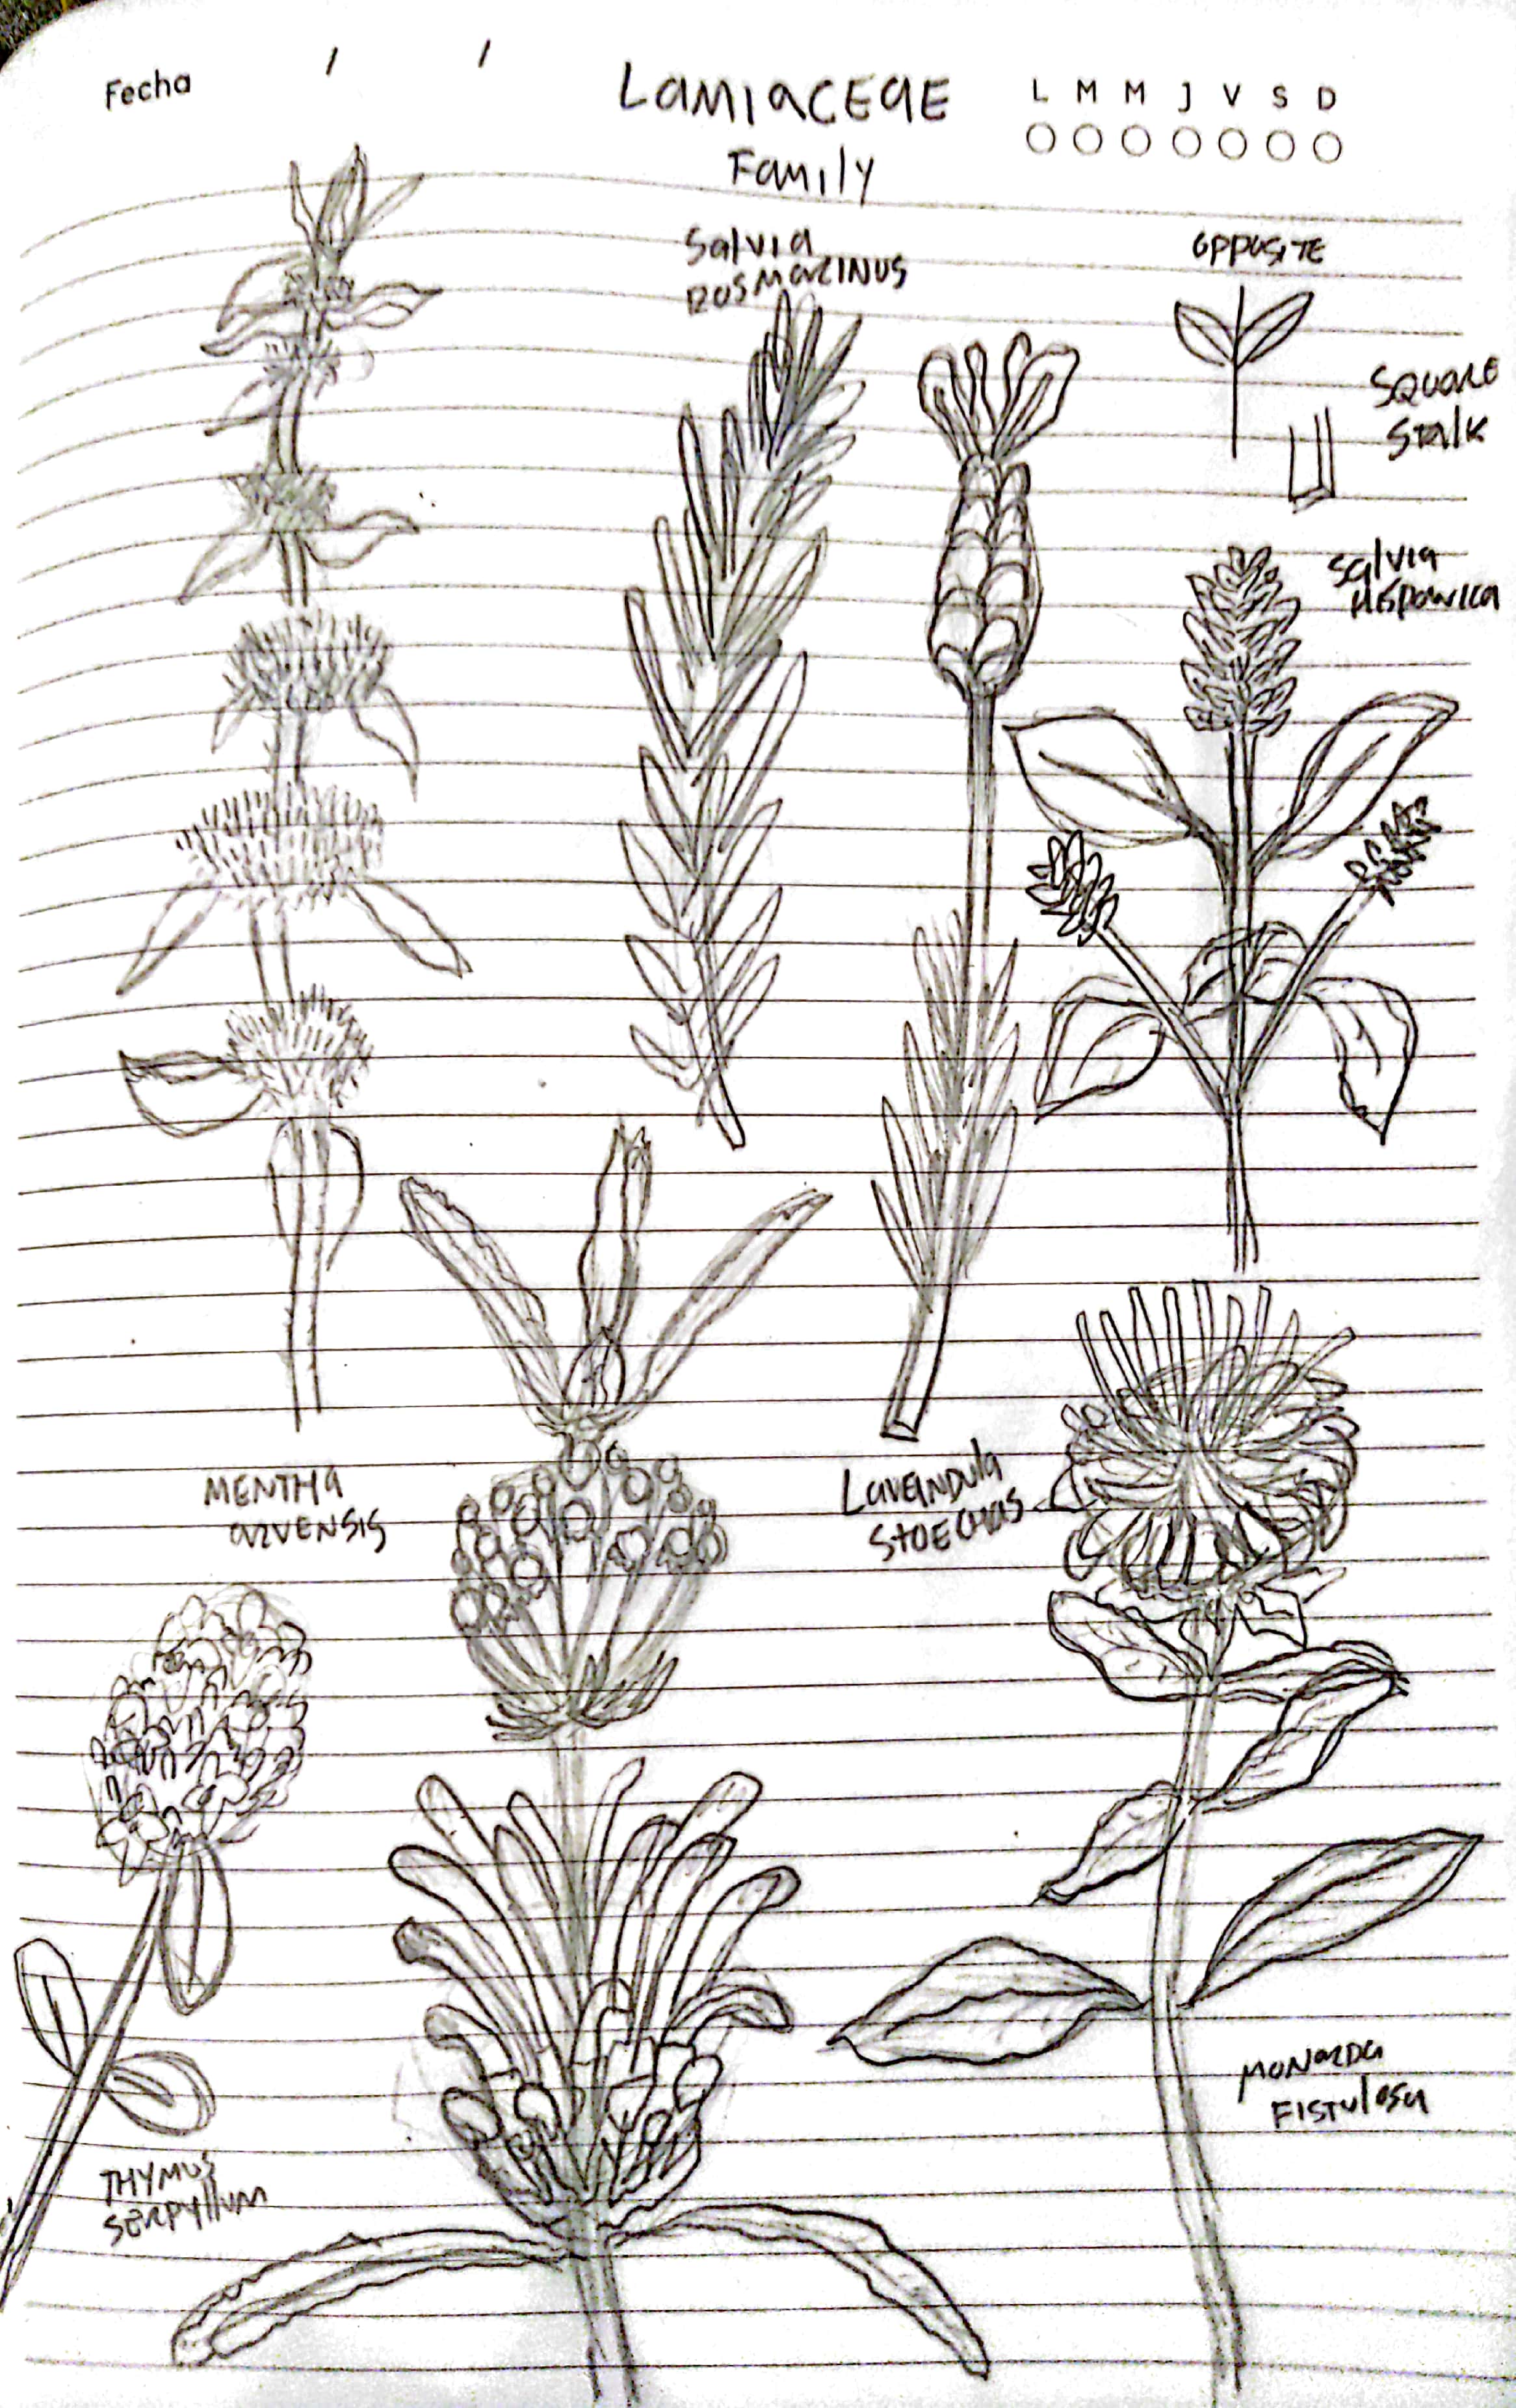 Fecha / /
Lamiaceae
Family
L M M J V S D
Salvia
Rosmarinus
OPPOSITE
SQUARE
Stalk
Salvia
Hispanica
MENTHA
arvensis
Lavandula
Stoechas
THYMUS
Serpyllum
Monarda
Fistulosa